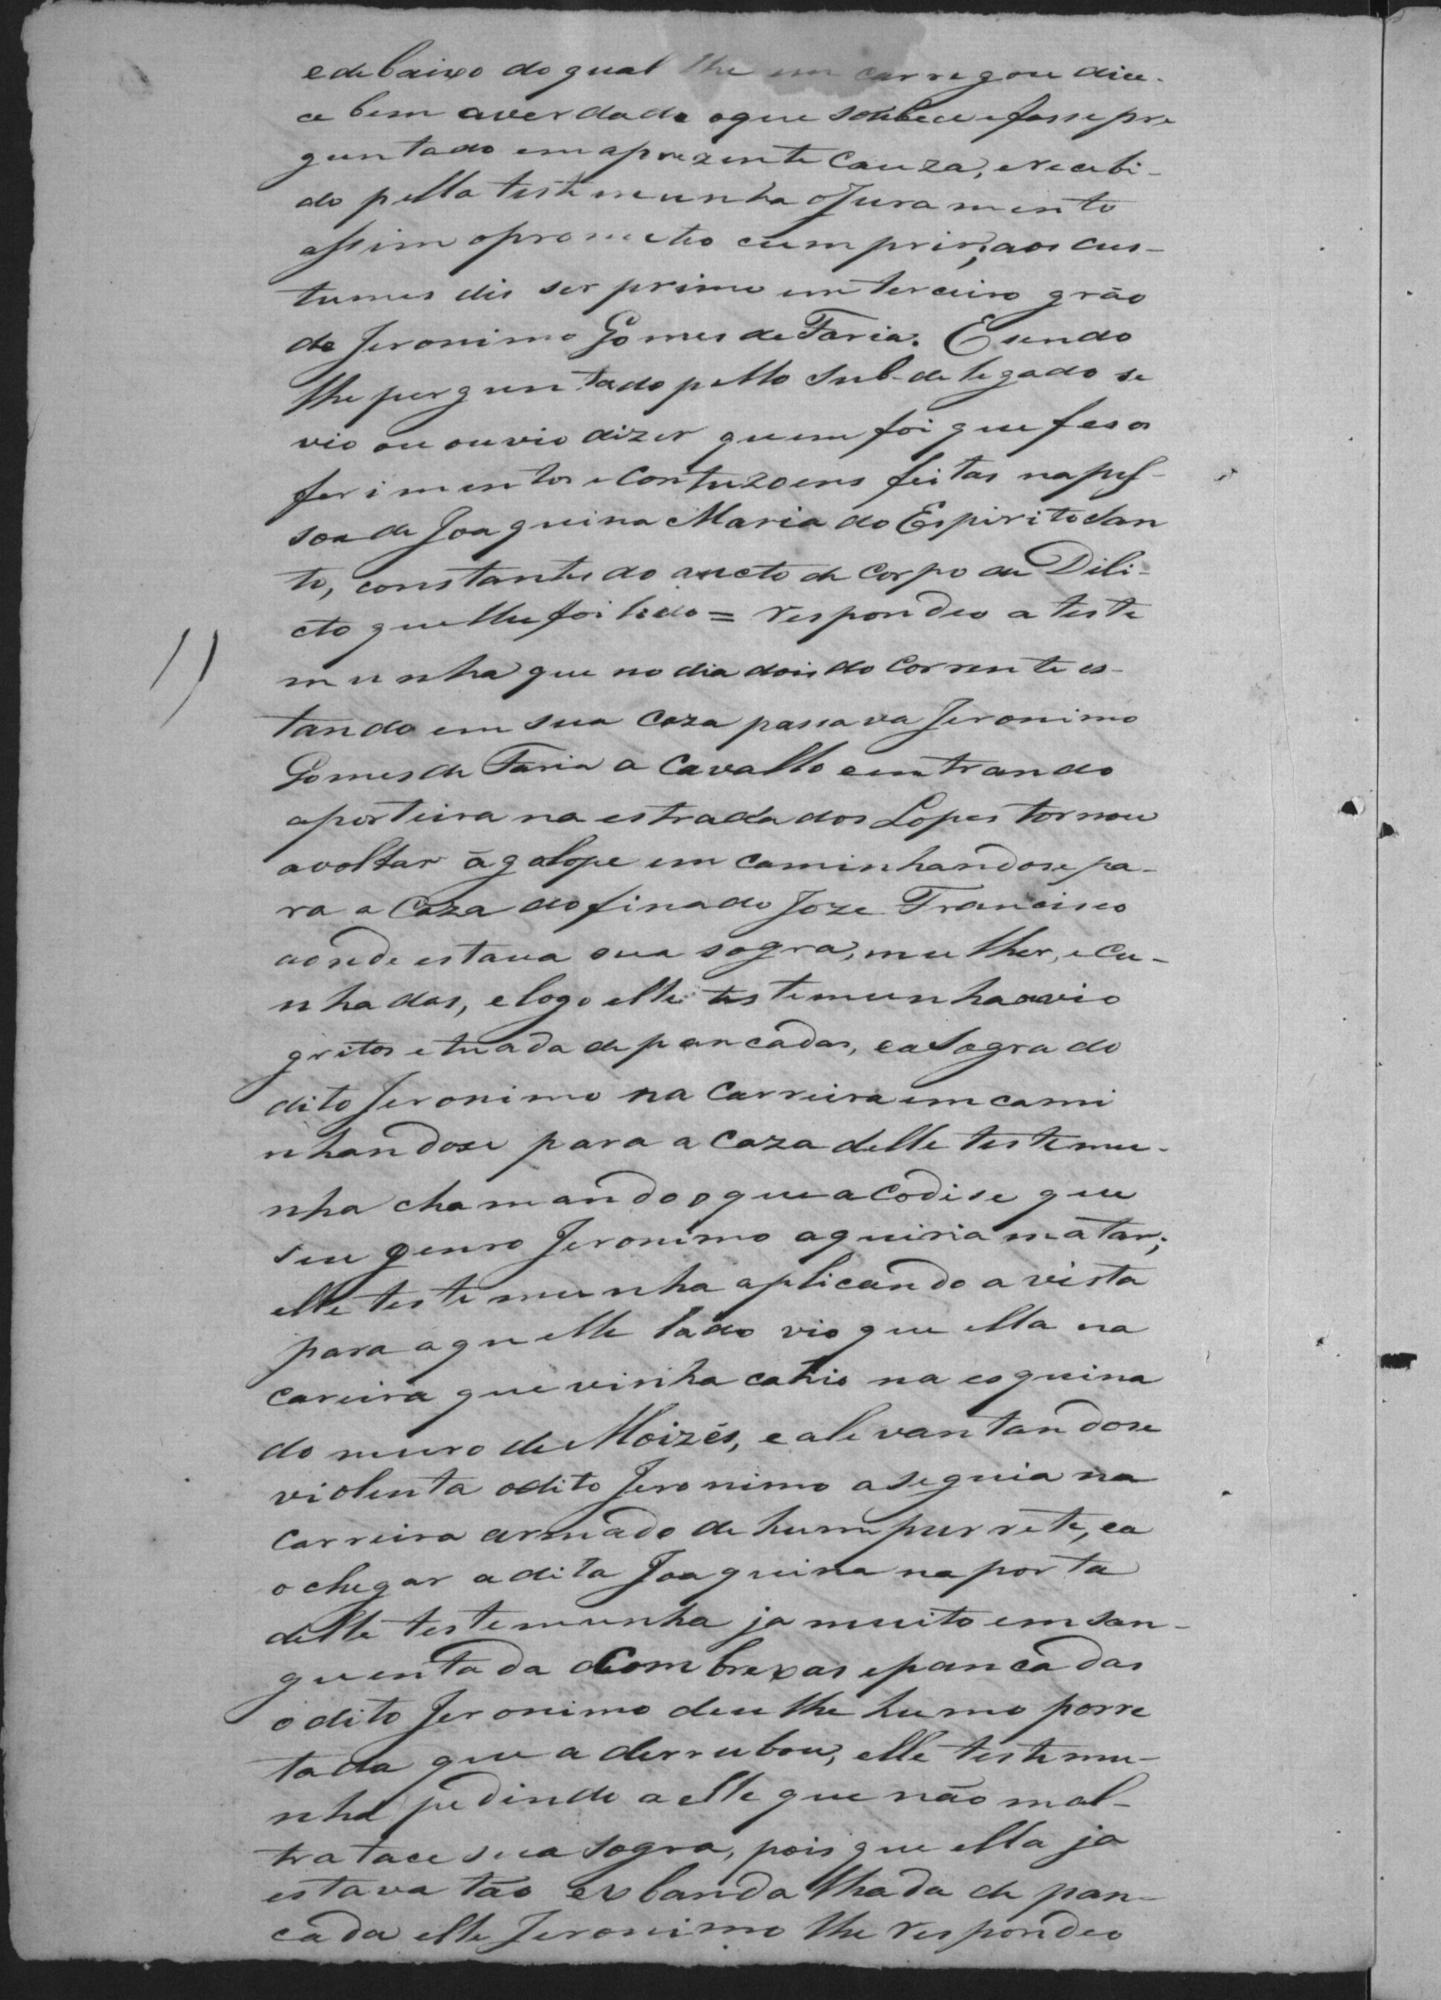 e debaixo do qual lhe em carregou dice-
ce bem averdade oque soubece efosse pre
guntado em aprezente Cauza, erecebi-
do pella testemunha oJuramento
assim oprometeo cumprir; aos cus-
tumes dis ser primo em terceiro gráo
de Jeronimo Gomes de Faria. E sendo
lhe perguntado pello Sub-delegado se
vio ou ouvio dizer quem foi que fes os
ferimentos e Contuzoens feitas napes-
soa de Joaquina Maria do Espirito San
to, constantes do aucto de Corpo de Deli-
cto que lhe foi lido = respondeo a teste
munha que no dia dois do Corrente es-
tando em sua Caza passava Jeronimo
Gomes de Faria a Cavallo e entrando
aporteira na estrada dos Lopes tornou
avoltar á galope em caminhandose pa-
ra a Caza do finado Joze Francisco
aonde estava sua sogra, mulher, e Cu-
nhadas, e logo elle testemunha ovio
gritos e tuada de pancadas, e a Sogra do
dito Jeronimo na Carreira em cami
nhandose para a Caza delle testemu-
nha chamando o que acodise que
seu genro Jeronimo aquiria matar;
elle testemunha aplicando a vista
para aquelle lado vio que ella na
careira que vinha cahio na esquina
do muro de Moizés, e alevantandose
violenta odito Jeronimo aseguia na
Carreira armado de hum purrete, ea
o chegar adita Joaquina na porta
delle testemunha ja muito emsan-
guentada Com brexas epancadas
o dito Jeronimo deu lhe huma porre
tada que a derrubou, elle testemu-
nha pedindo a elle que não mal-
tratace sua sogra, pois que ella ja
estava tão esbandalhada de pan-
cada elle Jeronimo lhe respondeo